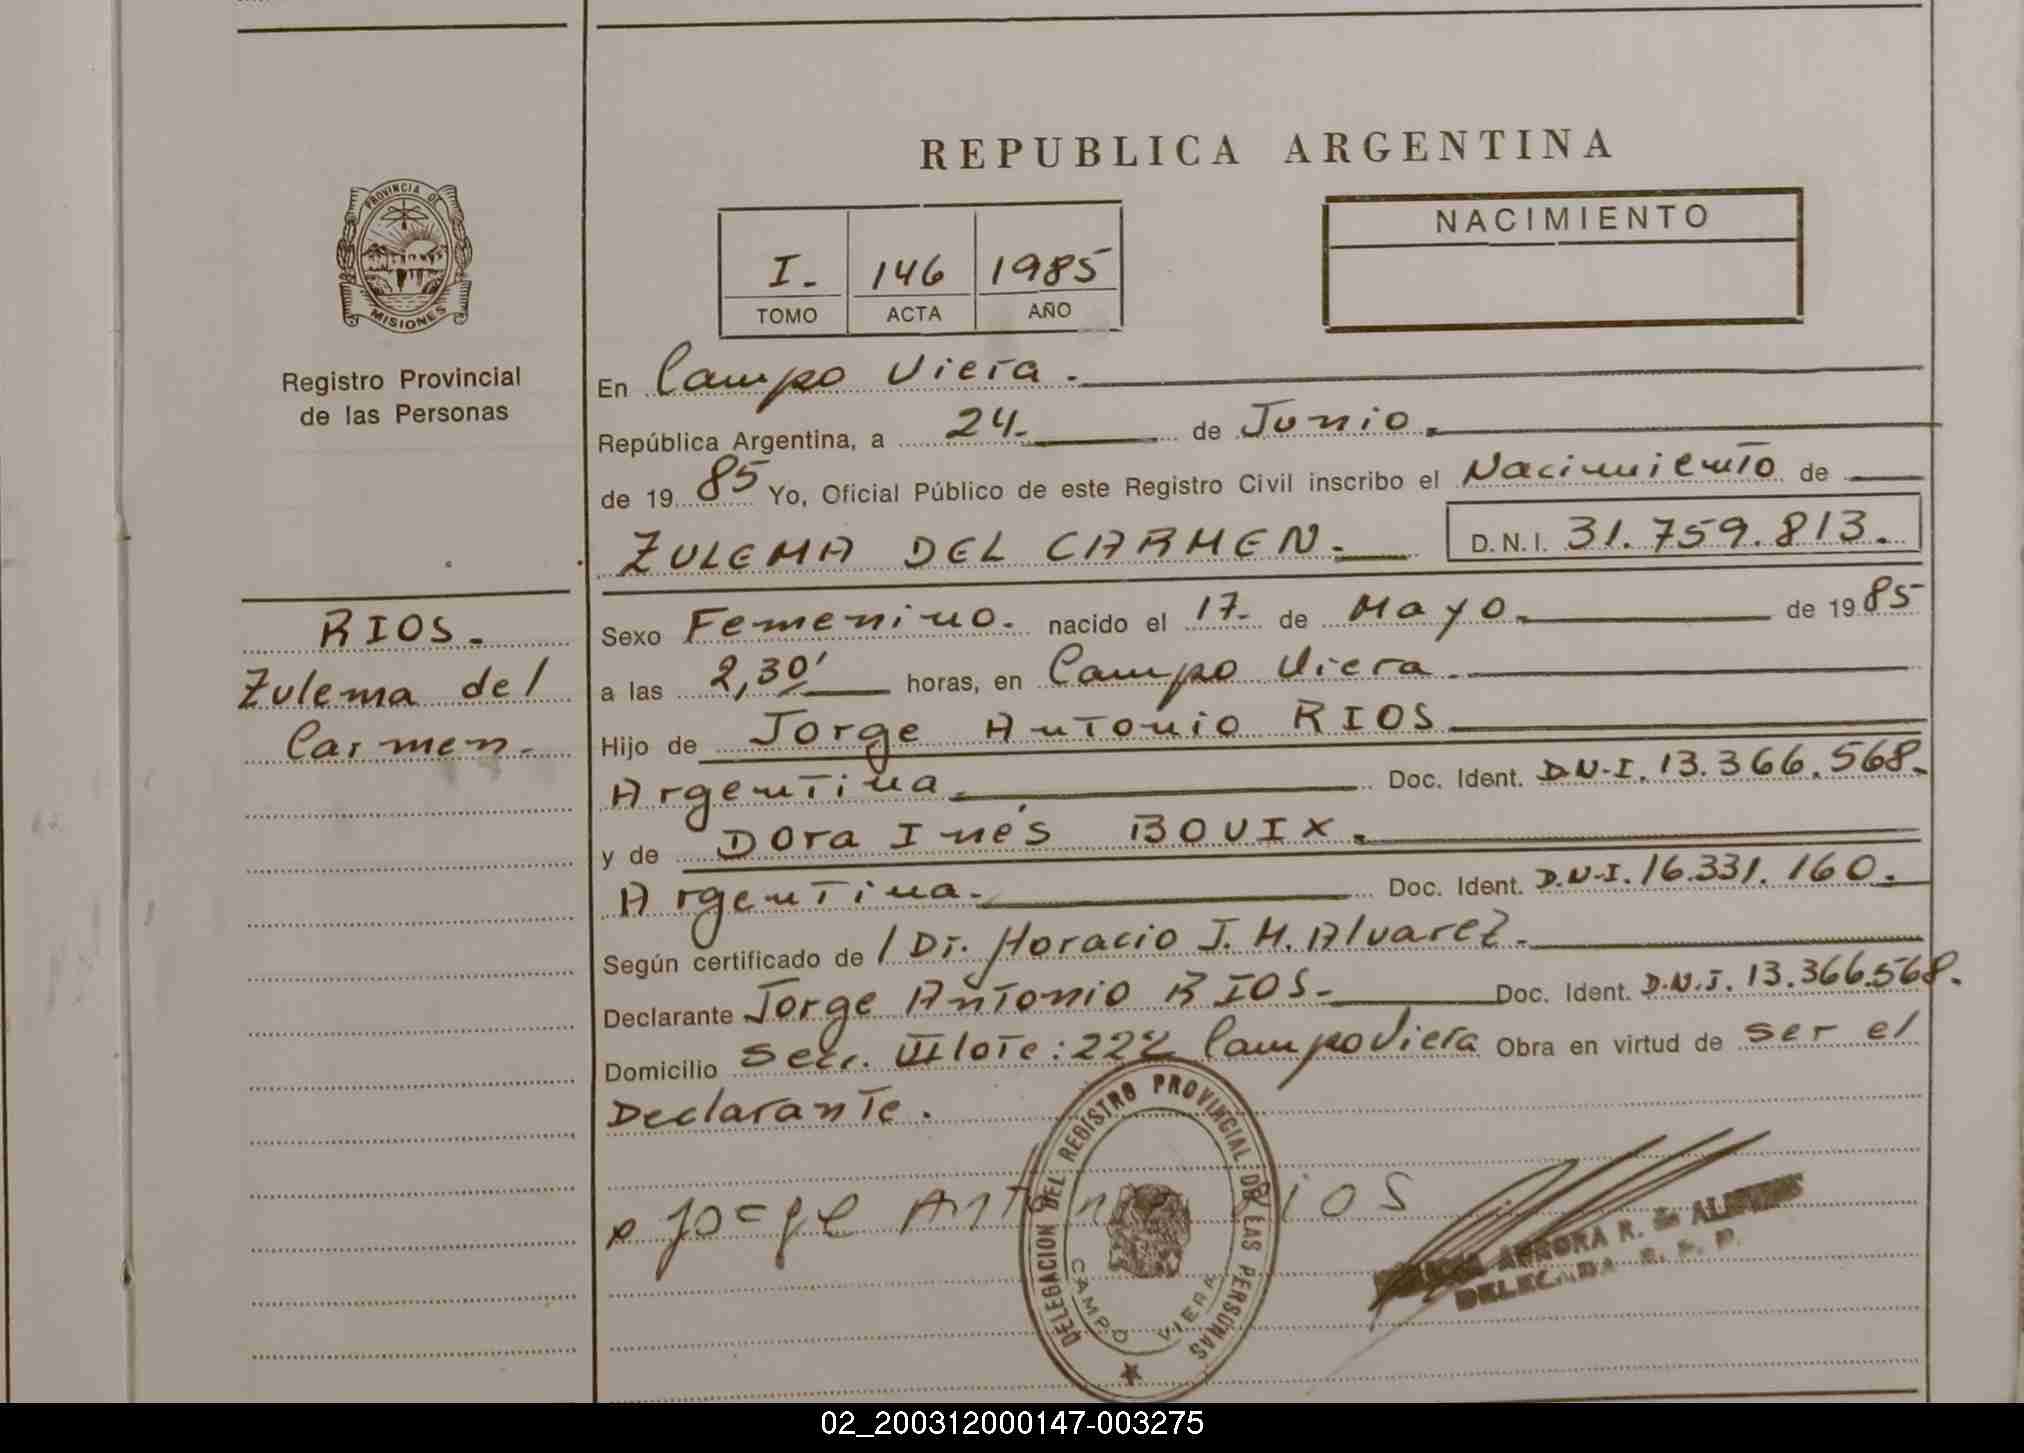 REPUBLICA ARGENTINA
PROVINCIA DE
MISIONES
Registro Provincial
de las Personas
RIOS.
Zulema del
Carmen.
I. 146 1985
TOMO ACTA AÑO
NACIMIENTO
En Campo Viera.
República Argentina, a 24. de Junio.
de 1985 Yo, Oficial Público de este Registro Civil inscribo el Nacimiento de
ZULEMA DEL CARMEN. D.N.I. 31.759.813.
Sexo Femenino. nacido el 17. de Mayo. de 1985
a las 2,30' horas, en Campo Viera.
Hijo de Jorge Antonio RIOS
Argentina. Doc. Ident. D.N.I. 13.366.568.
y de Dora Inés BOVIX.
Argentina. Doc. Ident. D.N.I. 16.331.160.
Según certificado de / Dr. Horacio J. M. Alvarez.
Declarante Jorge Antonio RIOS. Doc. Ident. D.N.I. 13.366.568.
Domicilio Sec. III lote: 222 Campo Viera Obra en virtud de ser el
Declarante.
Jorge Antonio Rios
DELEGACION DEL REGISTRO PROVINCIAL DE LAS PERSONAS
CAMPO VIERA
AURORA R. de
DELEGADA R. P. P.
02_200312000147-003275